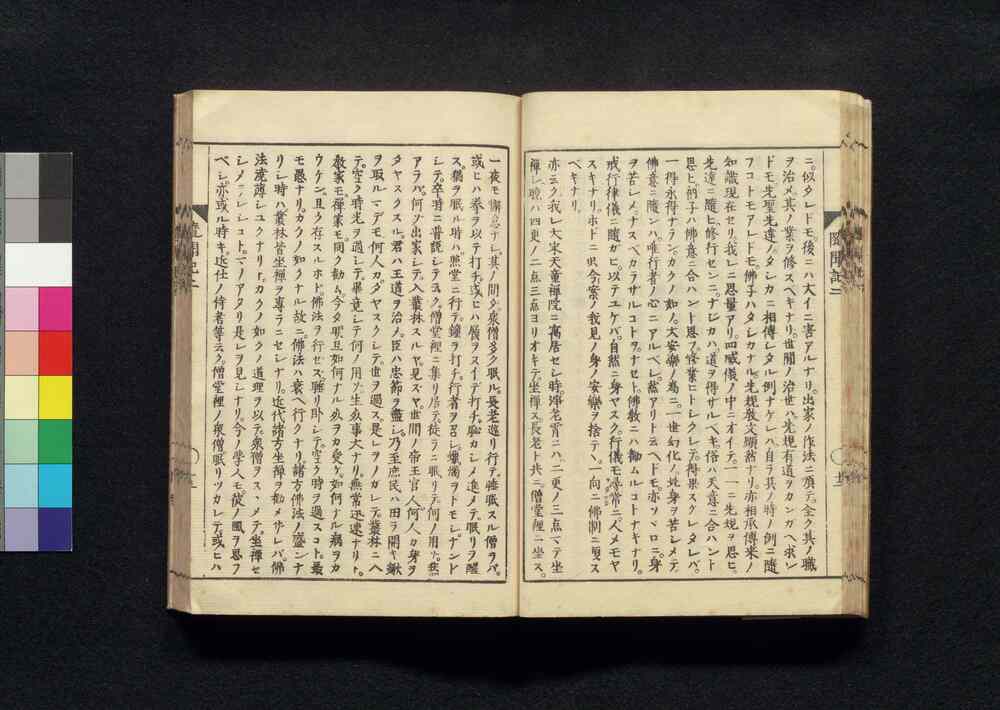 ニ。似タレドモ。後ニハ大イニ害アルナリ。出家ノ作法ニ順テ。全ク其ノ職
ヲ治メ。其ノ業ヲ修スベキナリ。世間ノ治世ハ先規有道ヲカンガヘ求ム
ドモ先聖先達ノタシカニ相傳シタル例ナケレバ。自ラ其ノ時ノ例ニ隨
フコトモアレドモ。佛子ハタシカナル先規教文顯然ナリ。亦相承傳來ノ
知識現在セリ。我レニ思量アリ。四威儀ノ中ニオイテ。一一ニ先規ヲ思ヒ。
先達ニ隨ヒ修行センニ。ナジカハ道ヲ得ザルベキ。俗ハ天意ニ合ハント
思ヒ。衲子ハ佛意ニ合ハント思フ。修業ヒトシクシテ得果スグレタレバ。
一得永得ナラン。カクノ如ノ大安樂ノ爲ニ。一世幻化ノ此身ヲ苦シメテ
佛意ニ隨ンハ。唯行者ノ心ニアルベシ。然アリト云ヘドモ亦ソヾロニ。身
ヲ苦シメ。ナスベカラザルコトヲ。ナセト。佛教ニハ勸ムルコトナキナリ。
戒行律儀ニ隨ガヒ以テユケバ。自然ニ身ヤスク。行儀モ尋常ニ。人メモヤ
スキナリ。ホドニ只今案ノ我見ノ身ノ安樂ヲ捨テヽ。一向ニ佛制ニ順ズ
ベキナリ。
亦云ク我レ大宋天童禪院ニ寓居セシ時。淨老宵ニハ二更ノ三點マデ坐
禪シ。曉ハ四更ノ二點三點ヨリオキテ坐禪ス。長老ト共ニ僧堂裡ニ坐ス。
隨聞記二
一夜モ懈怠ナシ。其ノ間ダ。衆僧多ク眠ル。長老巡リ行テ。睡眠スル僧ヲバ。
或ヒハ拳ヲ以テ打チ。或ヒハ履ヲヌイデ打チ。恥カシメ進メテ。眠リヲ醒
ス。猶ヲ眠ル時ハ照堂ニ行テ鐘ヲ打チ。行者ヲ召シ。蠟燭ヲトモシナンド
シテ。卒時ニ普説シテ云ク。僧堂裡ニ集リ居テ。徒ラニ眠リテ。何ノ用ゾ。然
アラバ。何ゾ出家シテ。入叢林スルヤ。見ズヤ。世間ノ帝王官人何人カ身ヲ
タヤスクスル。君ハ王道ヲ治ノ。臣ハ忠節ヲ盡シ。乃至庶民ハ田ヲ開キ鍬
ヲ取ルマデモ。何人カタヤスクシテ。世ヲ過ス。是レヲノガレテ。叢林ニ入
テ。空ク時光ヲ過シテ。畢竟シテ何ノ用ゾ。生死事大ナリ。無常迅速ナリト。
教家モ。禪家モ。同ク勸ム。今夕明旦如何ナル死ヲカ受ケ。如何ナル病ヲカ
ウケン。且ク存スルホド。佛法ヲ行ゼズ。睡リ卧シテ。空ク時ヲ過スコト。最
モ愚ナリ。カクノ如クナル故ニ。佛法ハ衰ヘ行クナリ。諸方佛法ノ盛ンナ
リシ時ハ。叢林皆坐禪ヲ專ラニセシナリ。近代諸方坐禪ヲ勸メザレバ。佛
法澆薄シユクナリト。カクノ如クノ道理ヲ以テ。衆僧ヲスヽメテ。坐禪セ
シメラレシコト。マノアタリ是レヲ見シナリ。今ノ學人モ彼ノ風ヲ思フ
ベシ。亦或ル時キ。近仕ノ侍者等云ク。僧堂裡ノ衆僧眠リツカレテ。或ヒハ
隨聞記二